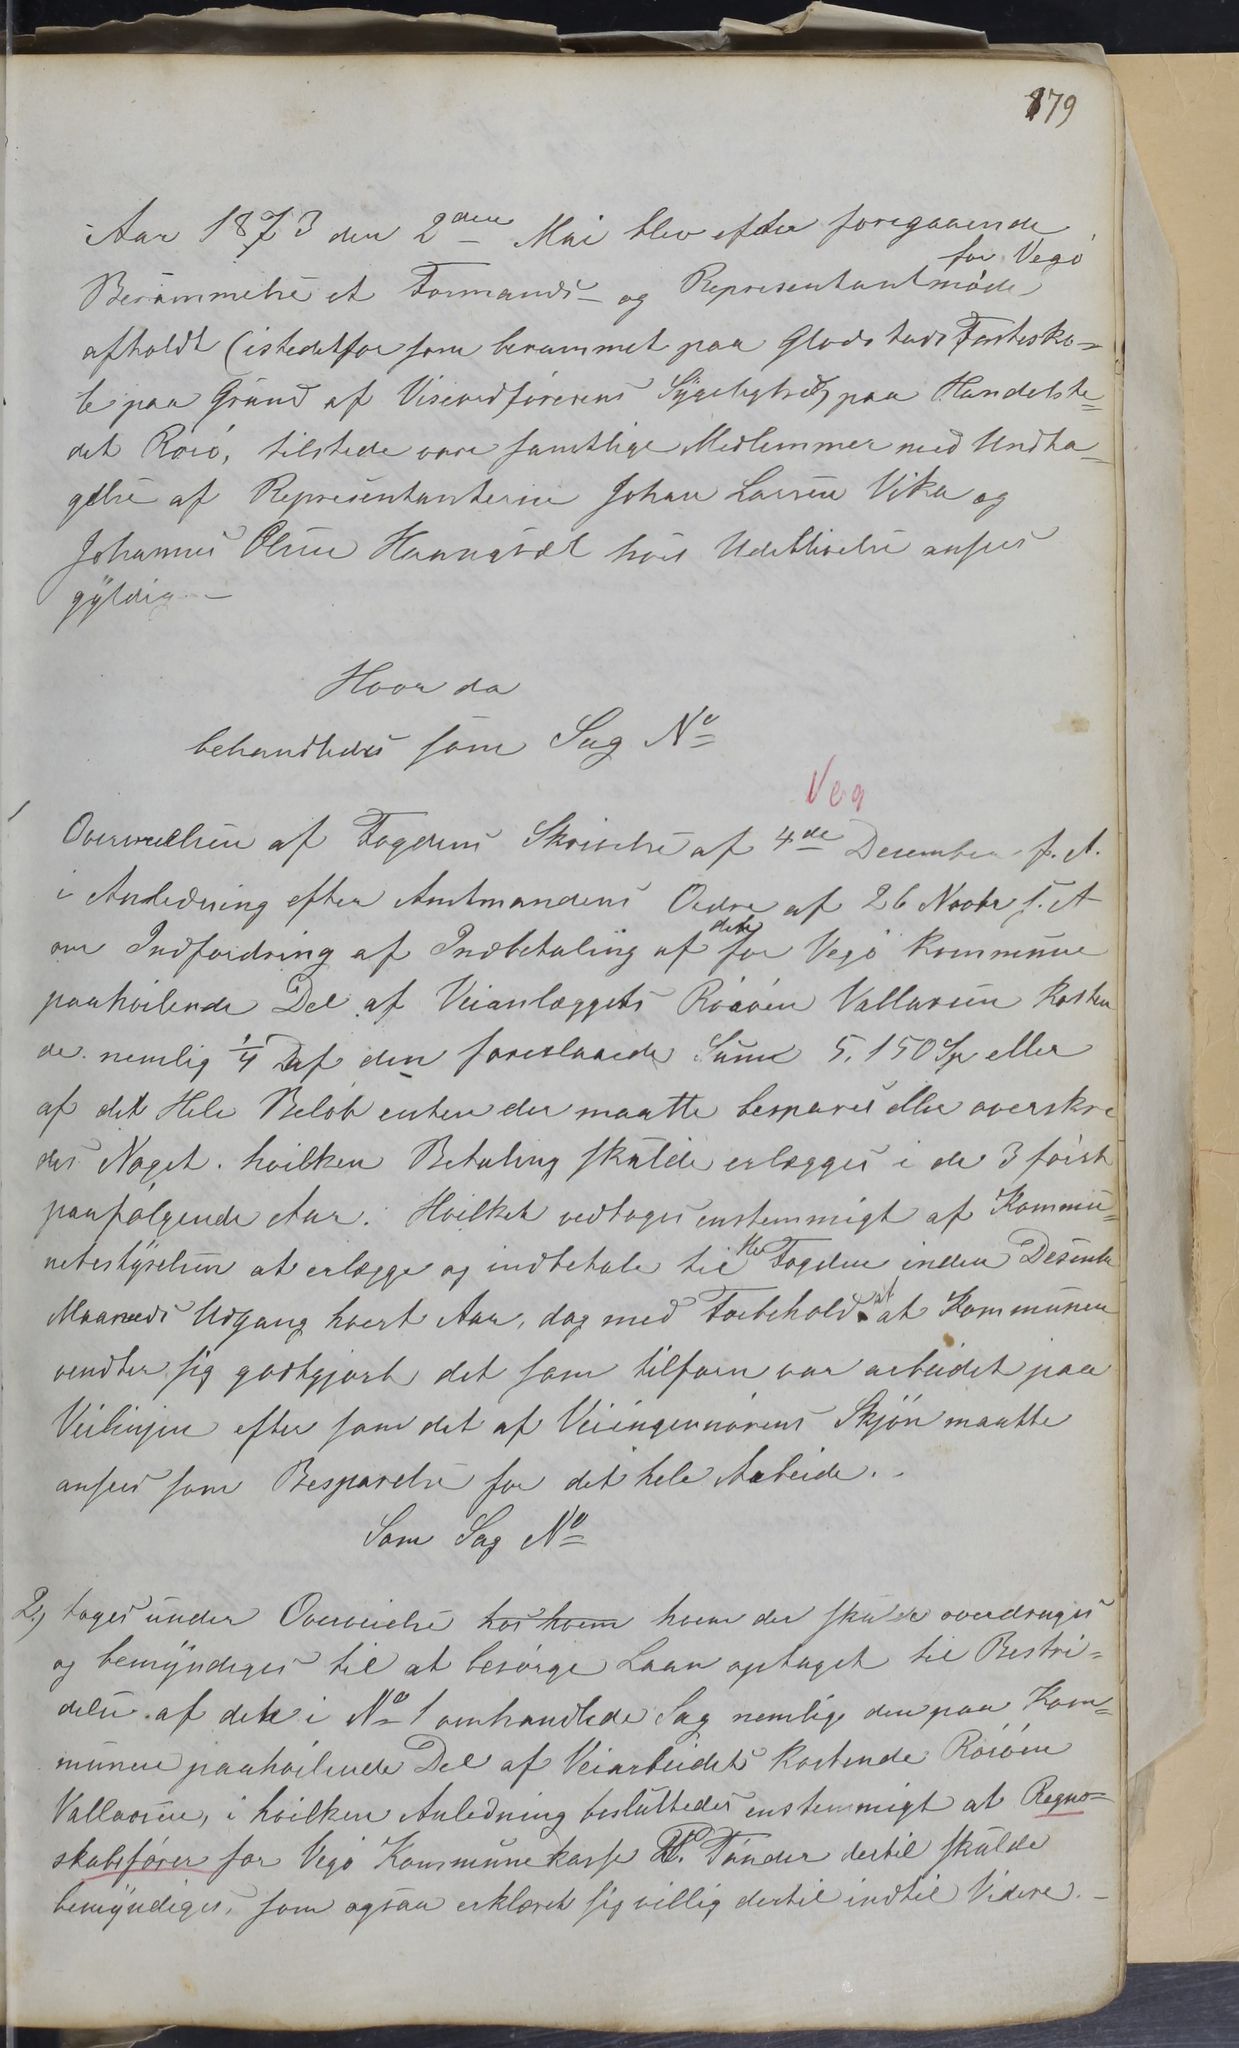 179
Aar 1873 den 2den Mai blev efter foregaaende
Berammelse et Formands- og Representantmøde for Vegø
afholdt (istedetfor som berammet paa Gladstads Fasteska-
le paa Grund af Viseordførerens Sygelighed) paa Handelste-
det Rørø, tilstede vare samtlige Medlemmer med Undta-
gelse af Representanterne Johan Larsen Vika og
Johannes Olsen Haangvæt hvis Udeblivelse ansees
gyldig. -
Hvor da
behandledes som Sag No
Veg
1 Overveielsen af Fogdens Skrivelse af 4de Desember f. A.
i Anledning efter Amtmandens Ordre af 26 Novbr f. A
om Indfordring af Indbetaling af den for Vegø Kommune
paahvilende Del af Veianlæggets Rørøen Vallasøen Kosten
de nemlig 1/4 Del af den foreslaaede Sum 5,150 Sp eller
af det Hele Beløb enten der maatte bespares eller overskre
des Noget. hvilken Betaling skulde erlægges i de 3 først
paafølgende Aar. Hvilket vedtoges enstemmigt af Kommu-
nebestyrelsen at erlægge og indbetale til Hr Fogden inden Desembr
Maaneds Udgang hvert Aar, dog med Forbehold at at Kommunen
vendter sig godtgjort det som tilforn var arbeidet paa
Veilinjen efter som det af Veiingeniørens Skjøn maatte
ansees som Besparelse for det hele Arbeide. -
Som Sag No
2, toges under Overveielse hos hvem hvem der skulde overdrages
og bemyndiges til at besørge Laan optaget til Bestri-
delse af det i No 1 omhandlede Sag nemlig den paa Kom-
munen paahvilende Del af Veiarbeidets Kostende Rørøen
Vallasøen, i hvilken Anledning besluttedes enstemmigt at Regns-
skabsfører for Vegø Kommunekasse P. Tønder dertil skulde
bemyndiges, som ogsaa erklæret sig villig dertil indtil Videre. -